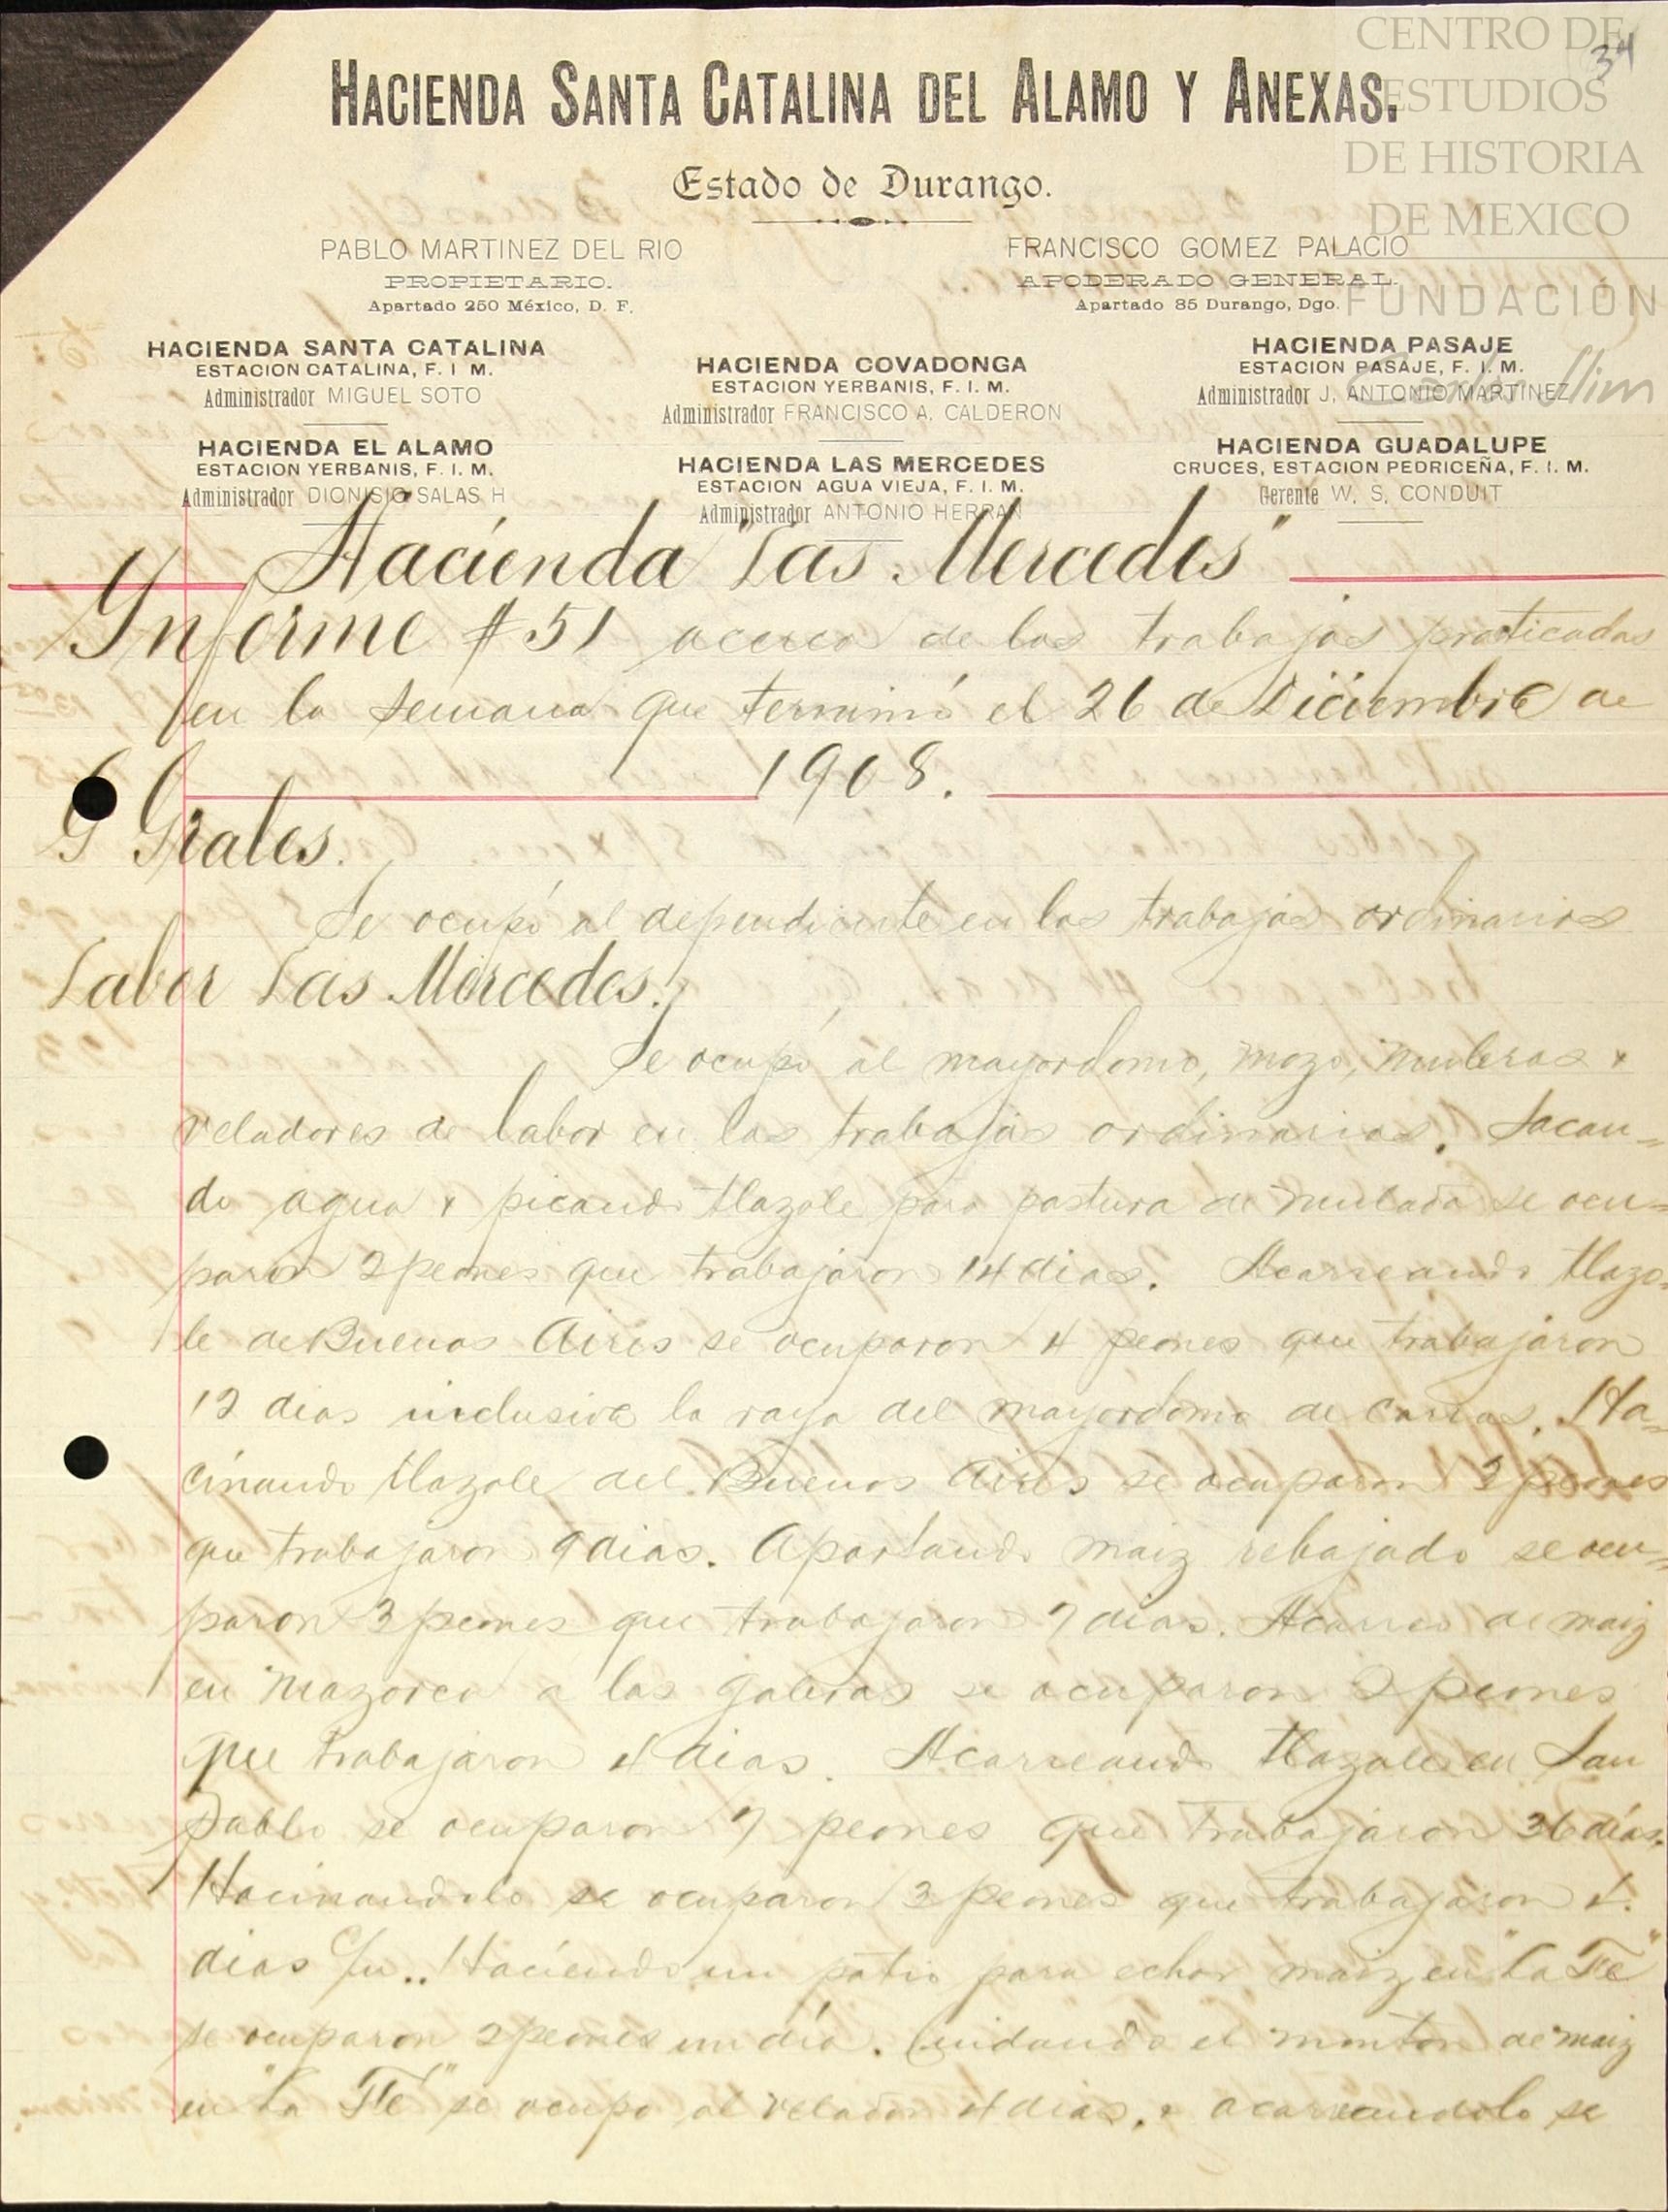 CENTRO DE
ESTUDIOS
DE HISTORIA
DE MEXICO
FUNDACIÓN
Carlos Slim
34
HACIENDA SANTA CATALINA DEL ALAMO Y ANEXAS.
Estado de Durango.
PABLO MARTINEZ DEL RIO
PROPIETARIO.
Apartado 250 México, D. F.
FRANCISCO GOMEZ PALACIO
APODERADO GENERAL.
Apartado 85 Durango, Dgo.
HACIENDA SANTA CATALINA
ESTACION CATALINA, F. I M.
Administrador MIGUEL SOTO
HACIENDA EL ALAMO
ESTACION YERBANIS, F. I. M.
Administrador DIONISIO SALAS H
HACIENDA COVADONGA
ESTACION YERBANIS, F. I. M.
Administrador FRANCISCO A. CALDERON
HACIENDA LAS MERCEDES
ESTACION AGUA VIEJA, F. I. M.
Administrador ANTONIO HERRAN
HACIENDA PASAJE
ESTACION PASAJE, F. I. M.
Administrador J. ANTONIO MARTINEZ
HACIENDA GUADALUPE
CRUCES, ESTACION PEDRICEÑA, F. I. M.
Gerente W. S. CONDUIT
Hacienda "Las Mercedes"
Informe # 51 acerca de los trabajos practicados
en la semana que terminó el 26 de Diciembre de
1908.
G Grales.
Se ocupó al dependiente en los trabajos ordinarios
Labor Las Mercedes.
Se ocupó al mayordomo, mozo, muleros y
veladores de labor en los trabajos ordinarios. Sacan=
do agua y picando tlazole para pastura de mulada se ocu=
paron 2 peones que trabajaron 14 dias. Acarreando tlazo=
le de Buenos Aires se ocuparon 4 peones que trabajaron
12 dias inclusive la raya del mayordomo de carros. Ha=
cinando tlazole del Buenos Aires se ocuparon 3 peones
que trabajaron 9 dias. Apartando maiz rebajado se ocu=
paron 3 peones que trabajaron 7 dias. Acarreo de maiz
en mazorca a las galeras se ocuparon 2 peones
que trabajaron 4 dias. Acarreando tlazole en San
Pablo se ocuparon 7 peones que trabajaron 36 días.
Hacinandolo se ocuparon 3 peones que trabajaron
dias c/u.. Haciendo un patio para echar maiz en "La Fé"
se ocuparon 2 peones un día. Cuidando el monton de maiz
en "La Fé" se ocupó al velador 4 dias. y acarreandolo se